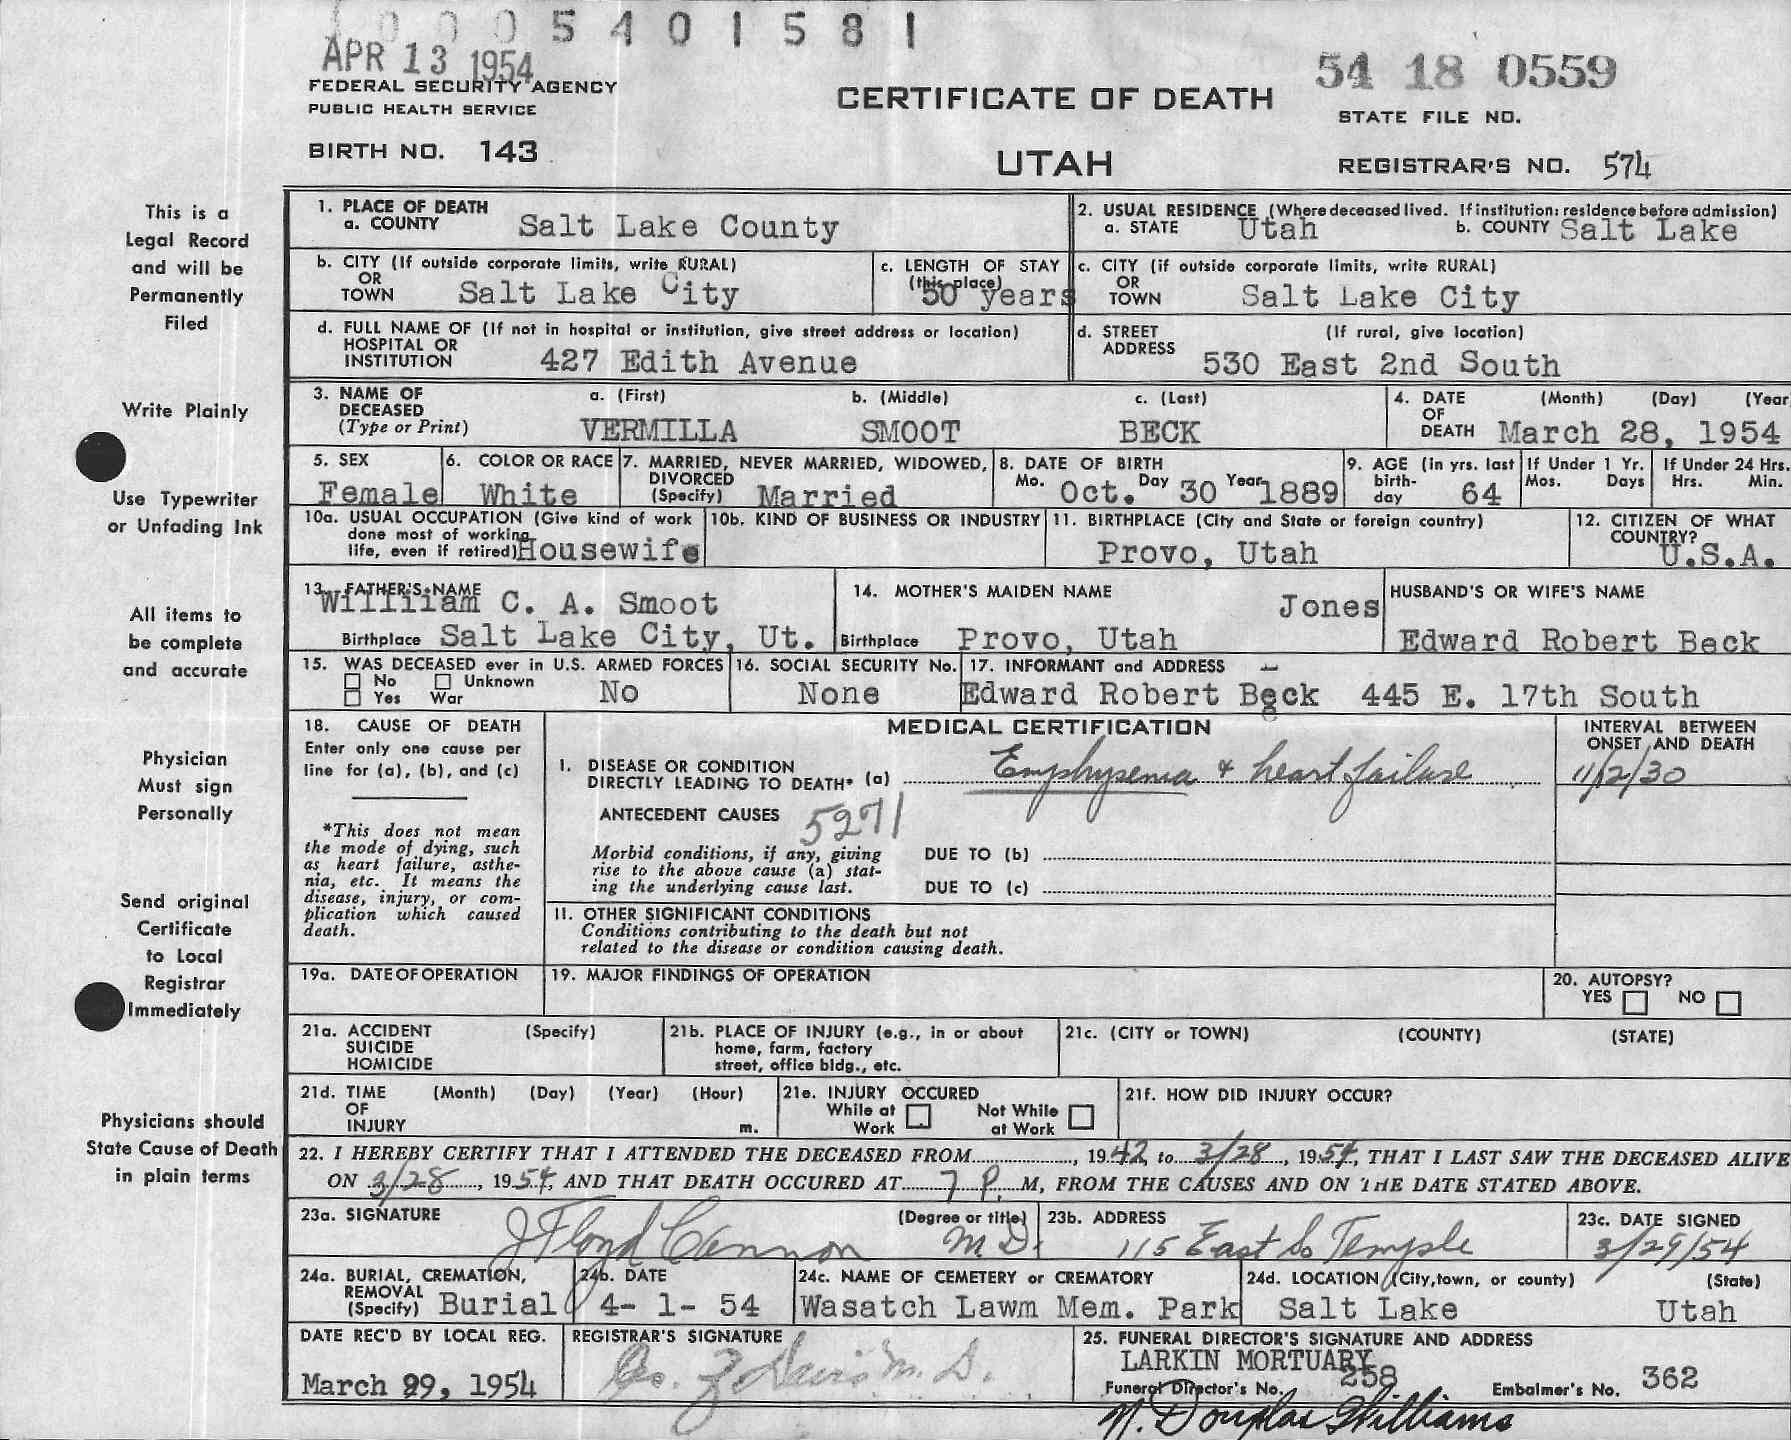 0005401581
APR 13 1954
54 18 0559
FEDERAL SECURITY AGENCY
PUBLIC HEALTH SERVICE
CERTIFICATE OF DEATH
STATE FILE NO.
BIRTH NO. 143
UTAH
REGISTRAR'S NO. 574
This is a
Legal Record
and will be
Permanently
Filed
Write Plainly
Use Typewriter
or Unfading Ink
All items to
be complete
and accurate
Physician
Must sign
Personally
Send original
Certificate
to Local
Registrar
Immediately
Physicians should
State Cause of Death
in plain terms
1. PLACE OF DEATH
a. COUNTY Salt Lake County
2. USUAL RESIDENCE (Where deceased lived. If institution: residence before admission)
a. STATE Utah b. COUNTY Salt Lake
b. CITY (If outside corporate limits, write RURAL)
OR
TOWN Salt Lake City
c. LENGTH OF STAY
(this place)
50 years
c. CITY (if outside corporate limits, write RURAL)
OR
TOWN Salt Lake City
d. FULL NAME OF (If not in hospital or institution, give street address or location)
HOSPITAL OR
INSTITUTION 427 Edith Avenue
d. STREET (If rural, give location)
ADDRESS 530 East 2nd South
3. NAME OF a. (First) b. (Middle) c. (Last)
DECEASED
(Type or Print) VERMILLA SMOOT BECK
4. DATE (Month) (Day) (Year
OF
DEATH March 28, 1954
5. SEX
Female
6. COLOR OR RACE
White
7. MARRIED, NEVER MARRIED, WIDOWED,
DIVORCED
(Specify) Married
8. DATE OF BIRTH
Mo. Oct. Day 30 Year 1889
9. AGE (in yrs. last
birth-
day 64
If Under 1 Yr.
Mos. Days
If Under 24 Hrs.
Hrs. Min.
10a. USUAL OCCUPATION (Give kind of work
done most of working
life, even if retired) Housewife
10b. KIND OF BUSINESS OR INDUSTRY
11. BIRTHPLACE (City and State or foreign country)
Provo, Utah
12. CITIZEN OF WHAT
COUNTRY?
U.S.A.
13. FATHER'S NAME
Willliam C. A. Smoot
Birthplace Salt Lake City, Ut.
14. MOTHER'S MAIDEN NAME
Jones
Birthplace Provo, Utah
HUSBAND'S OR WIFE'S NAME
Edward Robert Beck
15. WAS DECEASED ever in U.S. ARMED FORCES
No Unknown
Yes War No
16. SOCIAL SECURITY No.
None
17. INFORMANT and ADDRESS
Edward Robert Beck 445 E. 17th South
18. CAUSE OF DEATH
Enter only one cause per
line for (a), (b), and (c)
*This does not mean
the mode of dying, such
as heart failure, asthe-
nia, etc. It means the
disease, injury, or com-
plication which caused
death.
MEDICAL CERTIFICATION
INTERVAL BETWEEN
ONSET AND DEATH
I. DISEASE OR CONDITION
DIRECTLY LEADING TO DEATH* (a) Emphysema & heart failure
11/2/30
ANTECEDENT CAUSES 5271
Morbid conditions, if any, giving
rise to the above cause (a) stat-
ing the underlying cause last.
DUE TO (b)
DUE TO (c)
II. OTHER SIGNIFICANT CONDITIONS
Conditions contributing to the death but not
related to the disease or condition causing death.
19a. DATE OF OPERATION
19. MAJOR FINDINGS OF OPERATION
20. AUTOPSY?
YES NO
21a. ACCIDENT (Specify)
SUICIDE
HOMICIDE
21b. PLACE OF INJURY (e.g., in or about
home, farm, factory
street, office bldg., etc.
21c. (CITY or TOWN) (COUNTY) (STATE)
21d. TIME (Month) (Day) (Year) (Hour)
OF
INJURY m.
21e. INJURY OCCURED
While at Work Not While at Work
21f. HOW DID INJURY OCCUR?
22. I HEREBY CERTIFY THAT I ATTENDED THE DECEASED FROM , 1942, to 3/28, 1954, THAT I LAST SAW THE DECEASED ALIVE
ON 3/28, 1954, AND THAT DEATH OCCURED AT 7 P. M, FROM THE CAUSES AND ON THE DATE STATED ABOVE.
23a. SIGNATURE (Degree or title)
J Floyd Cannon M D.
23b. ADDRESS
115 East So Temple
23c. DATE SIGNED
3/29/54
24a. BURIAL, CREMATION,
REMOVAL
(Specify) Burial
24b. DATE
4- 1- 54
24c. NAME OF CEMETERY or CREMATORY
Wasatch Lawm Mem. Park
24d. LOCATION (City, town, or county) (State)
Salt Lake Utah
DATE REC'D BY LOCAL REG.
March 29, 1954
REGISTRAR'S SIGNATURE
25. FUNERAL DIRECTOR'S SIGNATURE AND ADDRESS
LARKIN MORTUARY
Funeral Director's No. 258 Embalmer's No. 362
N. Douglas Williams